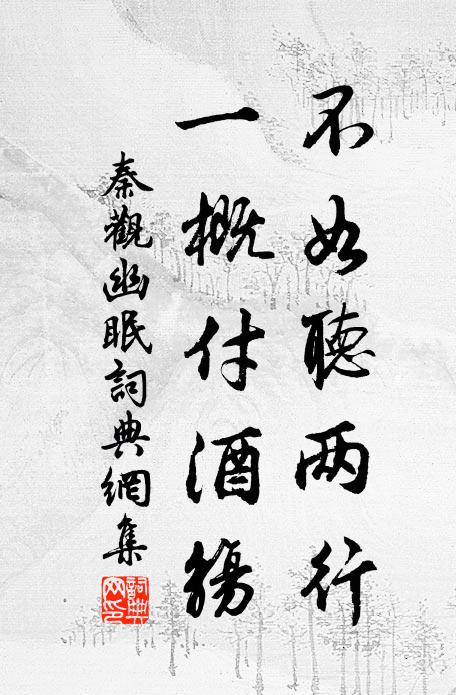 不如聽两行
一概付酒觴
秦觀幽眠詞典網集
詞典網印